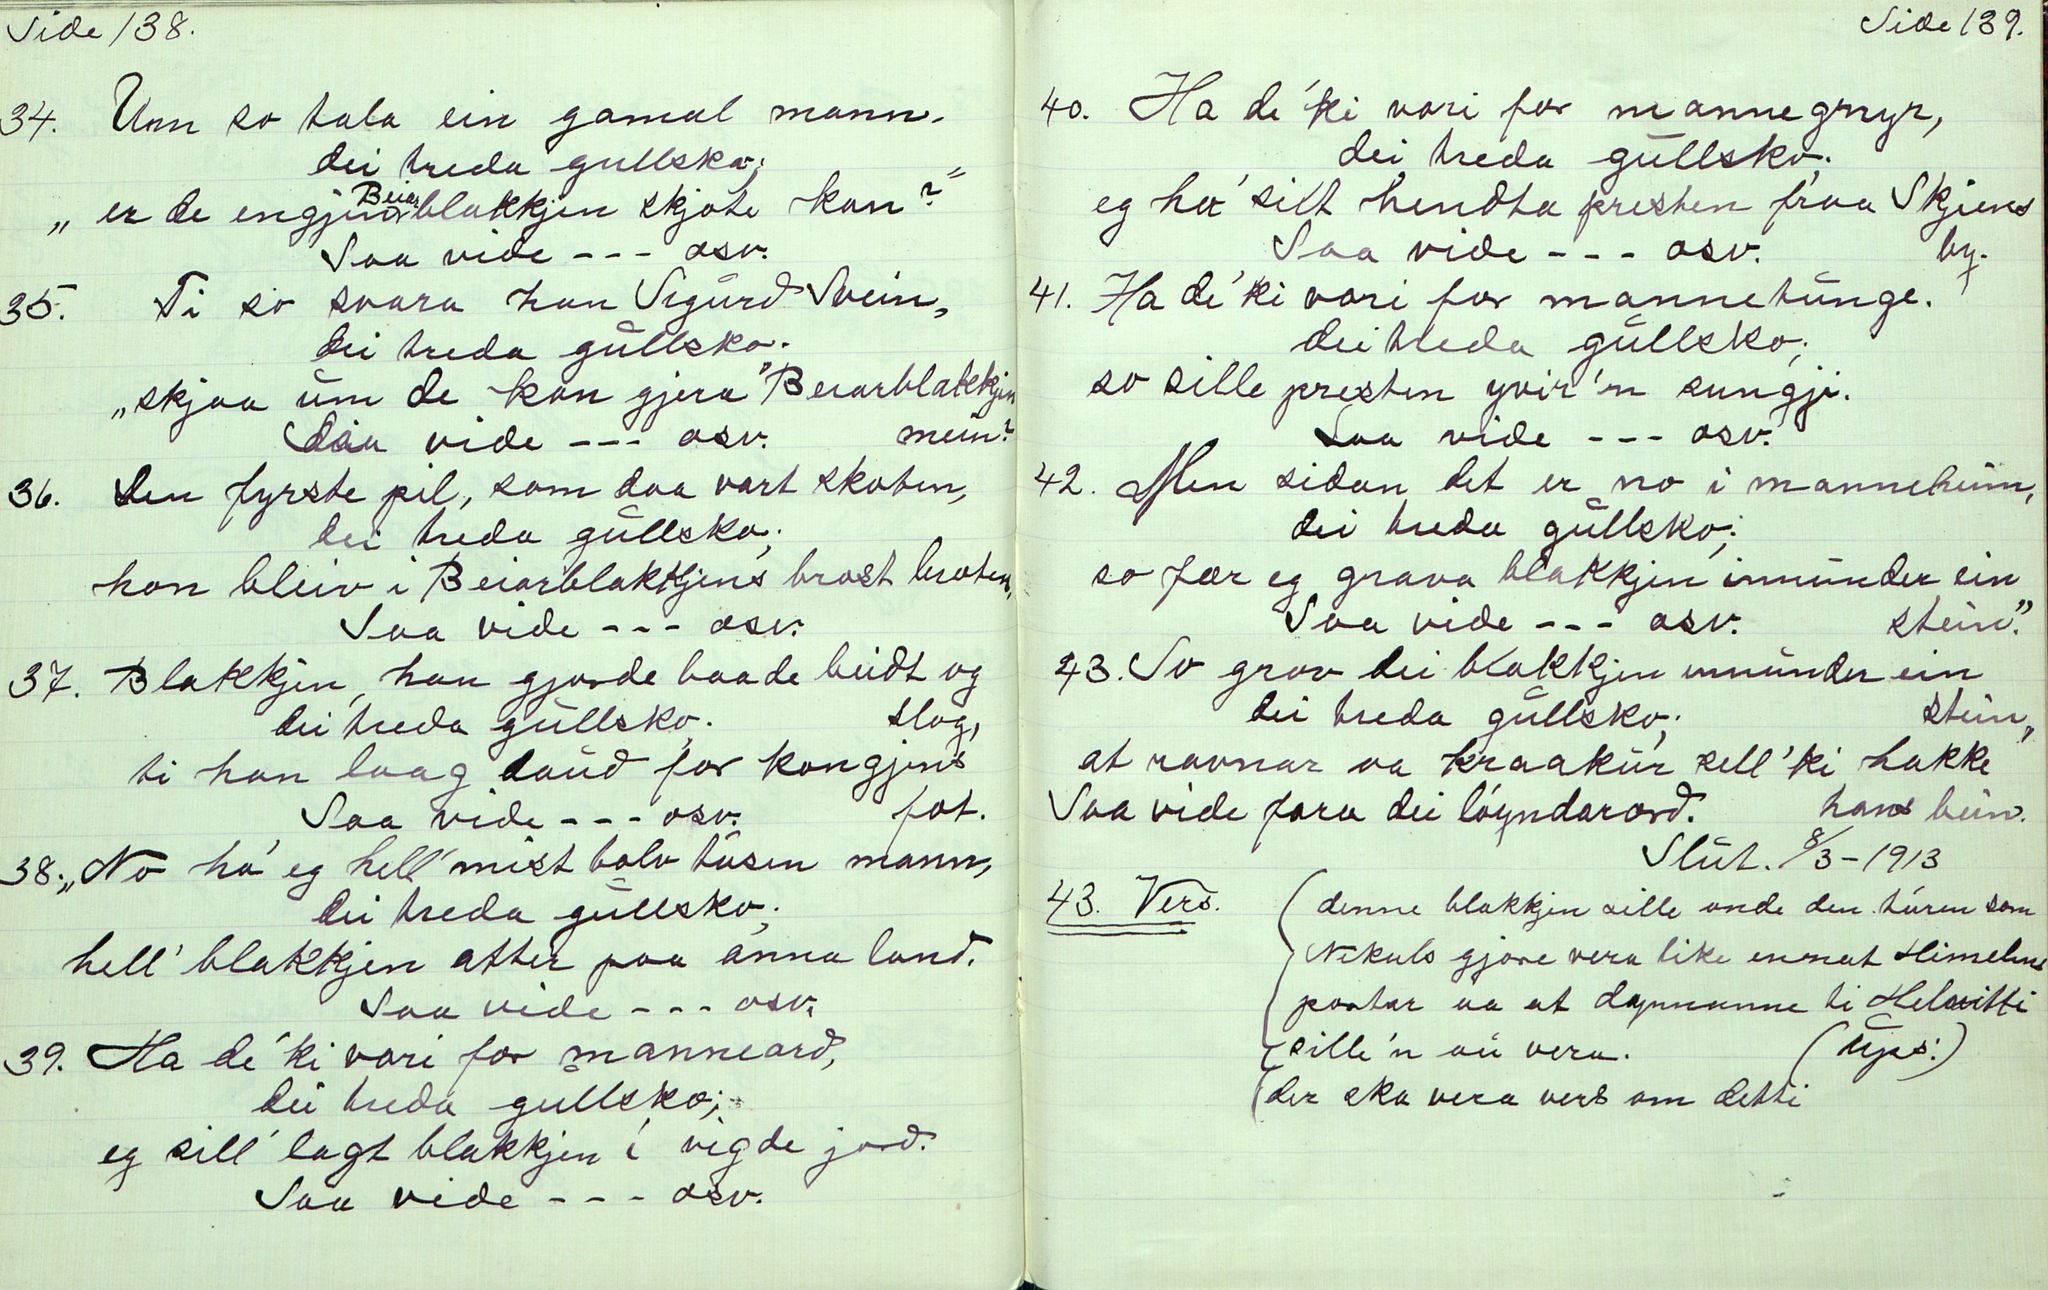 Side 138.
34. Unn so tala ein gamal mann.
dei treda gullsko;
„er de engjin Beiarblakkjen skjote kan?"
Saa vide --- osv.
35. Ti so svara han Sigurd Svein,
dei treda gullsko.
„skjaa um de kan gjera" Beiarblakkjin
Saa vide --- osv. mein?
36. Den fyrste pil, som daa vart skoten,
dei treda gullsko;
han bleiv i Beiarblakkjens brost broten,
Saa vide --- osv.
37. Blakkjin, han gjorde baade beidt og
dei treda gullsko. slog,
ti han laag daud for kongjens
Saa vide --- osv. fot.
38. „No ha' eg hell' mist tolv tusen mann,
dei treda gullsko;
hell' blakkjen atter paa anna land.
Saa vide --- osv.
39. Ha de' ki vori for manneord,
dei treda gullsko;
eg sill' lagt blakkjen i vigde jord.
Saa vide --- osv.
Side 139.
40. Ha de' ki vori for mannegnyr,
dei treda gullsko.
eg ha' silt hendta presten fraa Skjiens
Saa vide --- osv. by.
41. Ha de' ki vori for mannetunge.
dei treda gullsko;
so sille presten yvir'n sungji.
Saa vide --- osv.
42. Men sidan det er no i manneheim,
dei treda gullsko;
so fær eg grava blakkjen innunder ein
Saa vide --- osv. stein".
43. So grov dei blakkjen innunder ein
dei treda gullsko; stein,
at ravnar oa kraakur sell' ki hakke
Saa vide fara dei løyndarord. hans bein.
Slut. 8/3-1913
43. Vers. (denne blakkjen sille onde den turen som
Nikuls gjore vera like ennat Himelens
portar oa at dapnanne ti Helvitti
sille'n au vera. (Ups!)
(der ska vera vers om detti